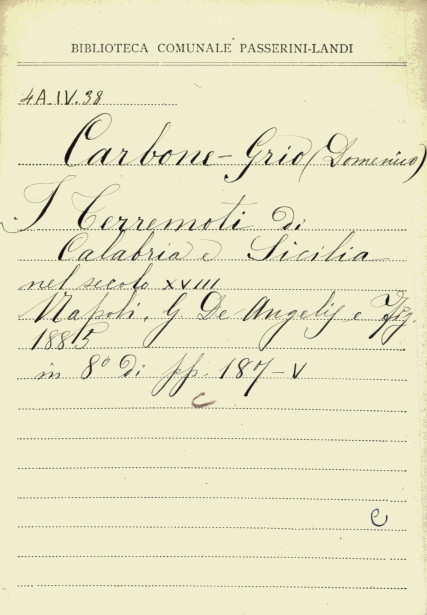 BIBLIOTECA COMUNALE PASSERINI-LANDI
4A.IV.38
Carbone-Grio (Domenico)
I Terremoti di
Calabria e Sicilia
nel secolo XVIII
Napoli, G. De Angelis e Fig.
1885
in 8º di pp. 187-V
C
C